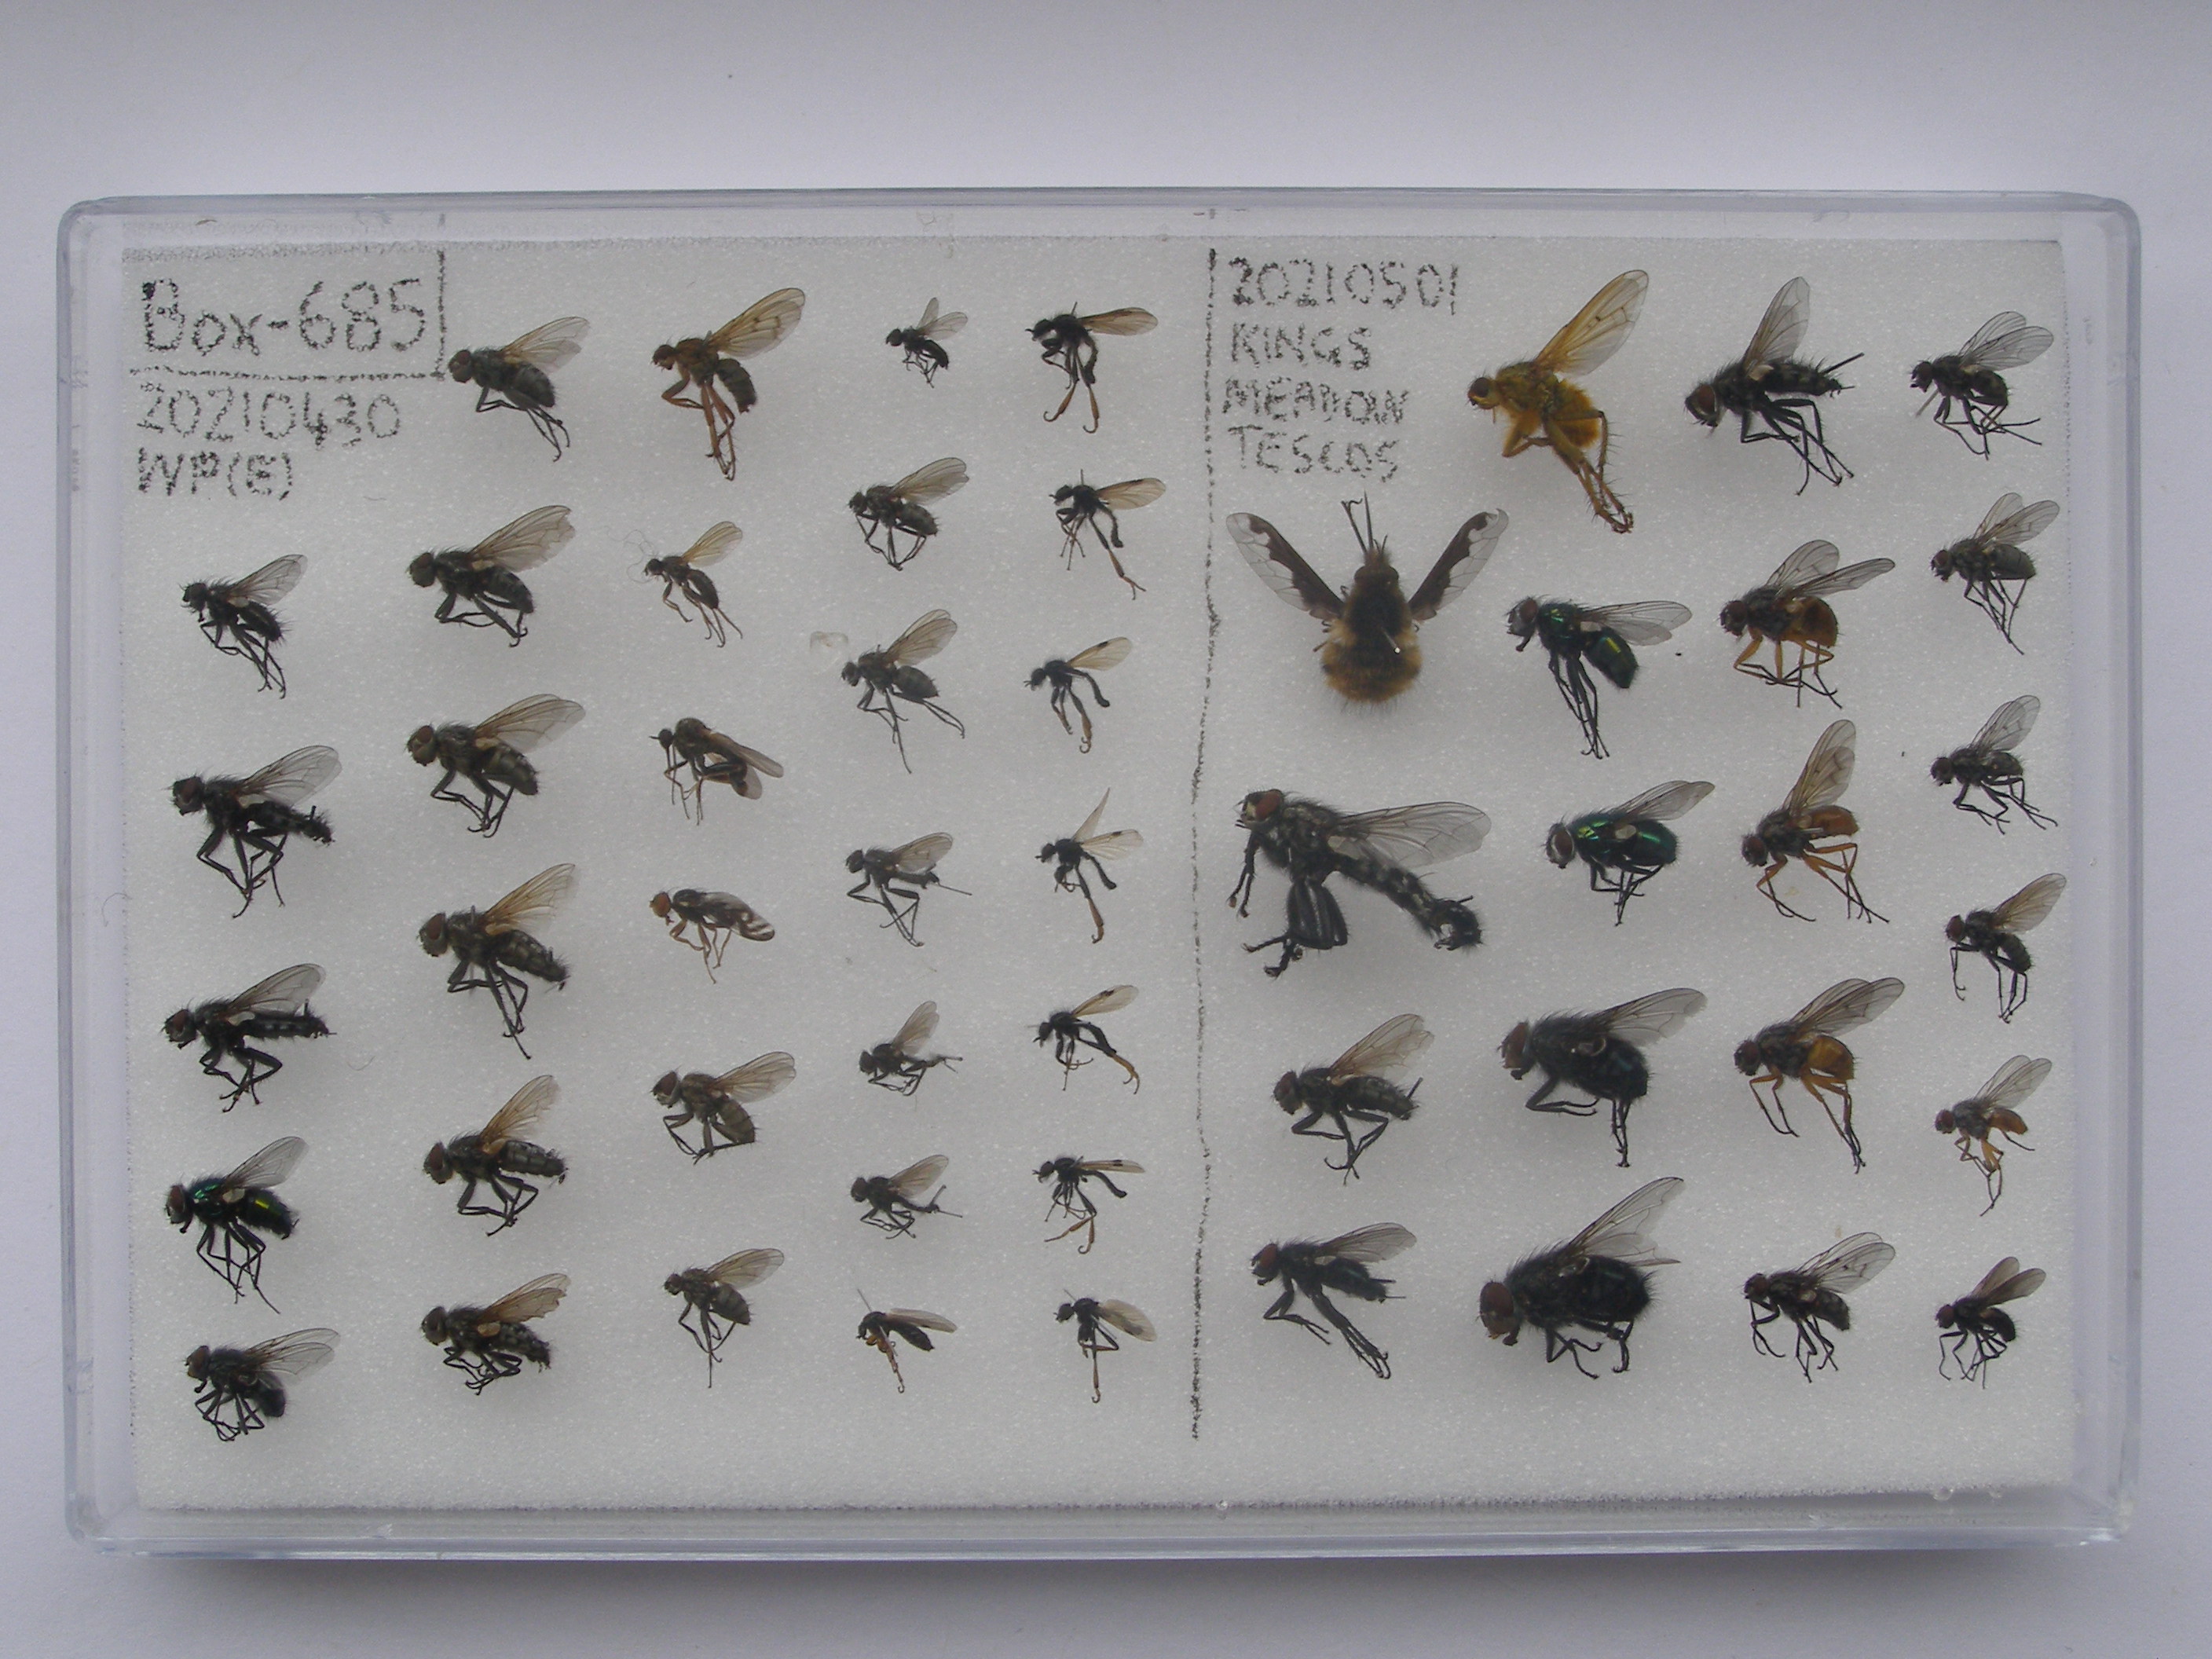 Box-685
20210430
WP(E)
20210501
KINGS
MEADOW
TESCOS